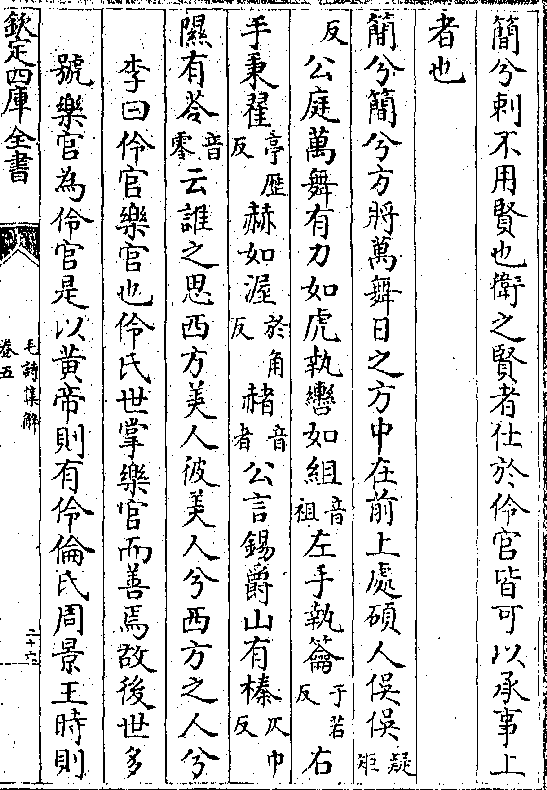 簡兮刺不用賢也衛之賢者仕於伶官皆可以承事上
者也
簡兮簡兮方將萬舞日之方中在前上處碩人俁俁疑矩
反公庭萬舞有力如虎執轡如組音祖左手執籥于若反右
手秉翟亭歷反赫如渥於角反赭音者公言錫爵山有榛仄巾反
隰有苓音零云誰之思西方美人彼美人兮西方之人兮
李曰伶官樂官也伶氏世掌樂官而善焉故後世多
號樂官為伶官是以黃帝則有伶倫氏周景王時則
欽定四庫全書
毛詩集解
卷五
二十六